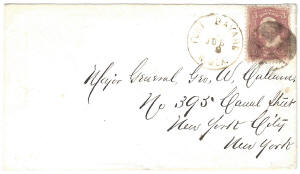 Major General, Geo. W. Cullum,
No 395 Canal Street
New York City
New York